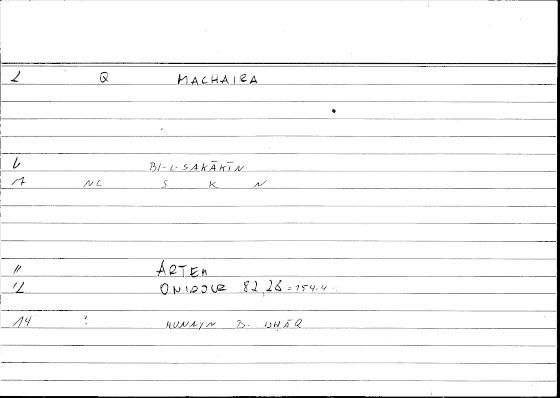 2 Q MACHAIRA
6 BI-L-SAKĀKĪN
7 NC S K N
11 ARTEM
12 ONIROCR 82,26 = 154.4
14 ? HUNAYN B. ISHĀQ